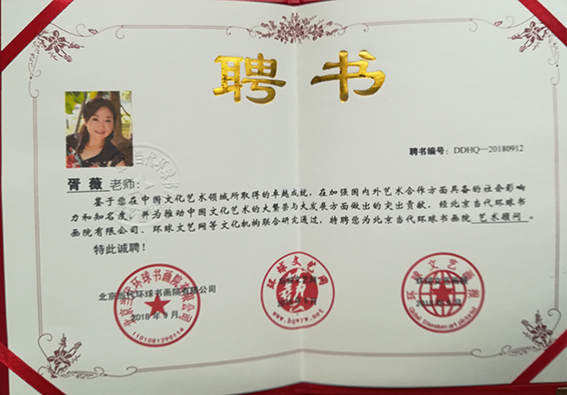 聘书
聘书编号：DDHQ—20180912
胥薇 老师：
鉴于您在中国文化艺术领域所取得的卓越成就，在加强国内外艺术合作方面具备的社会影响
力和知名度，并为推动中国文化艺术的大繁荣与大发展方面做出的突出贡献，经北京当代环球书
画院有限公司、环球文艺网等文化机构联合研究通过，特聘您为北京当代环球书画院 艺术顾问 。
特此诚聘！
北京当代环球书画院有限公司
2018年9月
环球文艺网
www.hqwyw.net
环球文艺